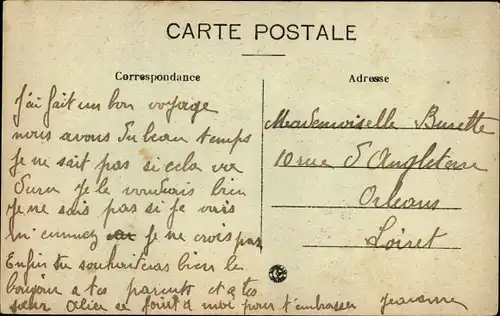 CARTE POSTALE
Correspondance
J'ai fait un bon voyage
nous avons du beau temps
Je ne sait pas si cela va
Durer Je le voudrais bien
Je ne sais pas si je vais
m'ennuyez car Je ne crois pas
Enfin tu souhaiteras bien le
bonjour a tes parents et a tes
sœur Alice se joint a moi pour t'embrasser Jeanne
Adresse
Mademoiselle Busette
10 rue d'Angleterre
Orleans
Loiret